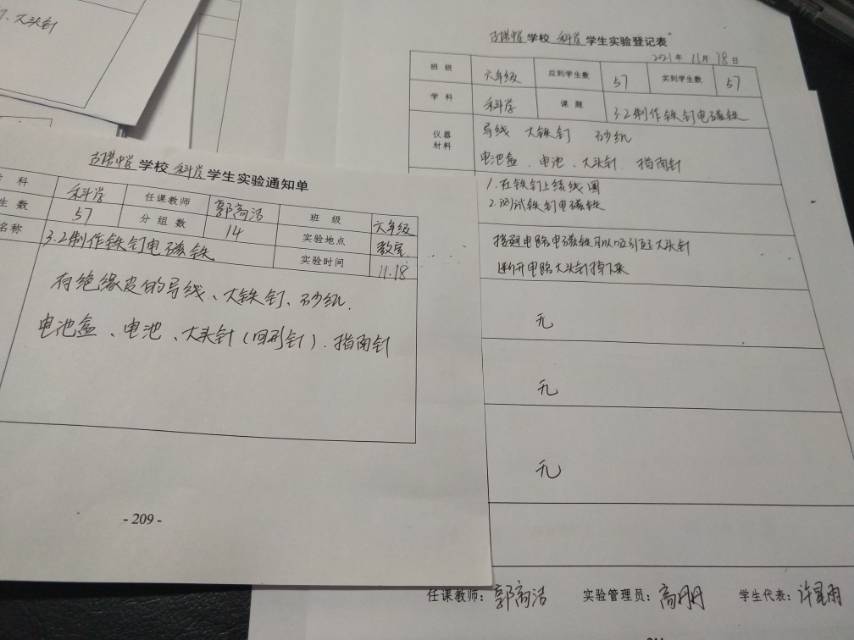 大头针
学校 科学 学生实验通知单
科 科学 任课教师 班级 六年级
生数 57 分组数 14 实验地点 教室
名称 3.2制作铁钉电磁铁 实验时间 11.18
有绝缘皮的导线、大铁钉、砂纸.
电池盒、电池、大头针(回形针).指南针
- 209 -
学校 科学 学生实验登记表
2021年 11月 18日
班级 六年级 应到学生数 57 实到学生数 57
学科 科学 课题 3.2制作铁钉电磁铁
仪器材料 导线 大铁钉 砂纸
电池盒、电池、大头针 指南针
1.在铁钉上绕线圈
2.测试铁钉电磁铁
接通电路电磁铁可以吸引起大头针
断开电路大头针掉下来
无
无
无
任课教师: 实验管理员: 学生代表: